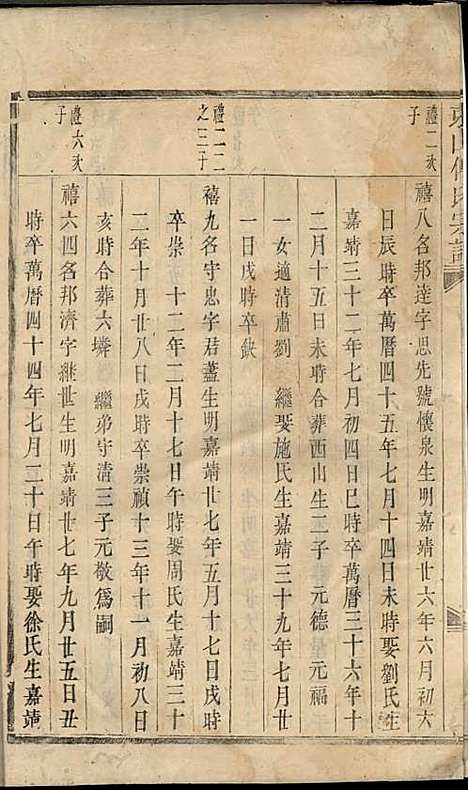 東山傅氏宗譜
禮二次子
禧八名邦達字思先號懷泉生明嘉靖廿六年六月初六
日辰時卒萬曆四十五年七月十四日未時娶劉氏生
嘉靖三十二年七月初四日巳時卒萬曆三十六年十
二月十五日未時合葬西山生二子元德 元福
一女適清肅劉 繼娶施氏生嘉靖三十九年七月廿
一日戌時卒缺
禮二二之三子
禧九名守忠字君藎生明嘉靖廿七年五月十七日戌時
卒崇 十二年二月十七日午時娶周氏生嘉靖三十
二年十月廿八日戌時卒崇禎十三年十一月初八日
亥時合葬六塝 繼弟守清三子元敬爲嗣
禮六次子
禧六四名邦濟字繼世生明嘉靖廿七年九月廿五日丑
時卒萬曆四十四年七月二十日午時娶徐氏生嘉靖